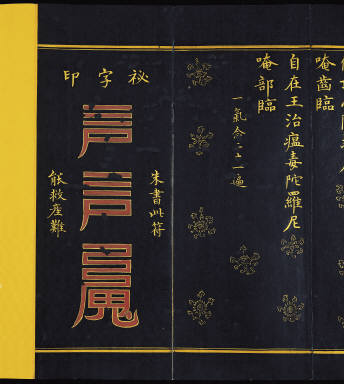 唵齒臨
自在王治瘟毒陀羅尼
唵部臨
一氣念二十一遍
祕字印
朱書此符
能救産難